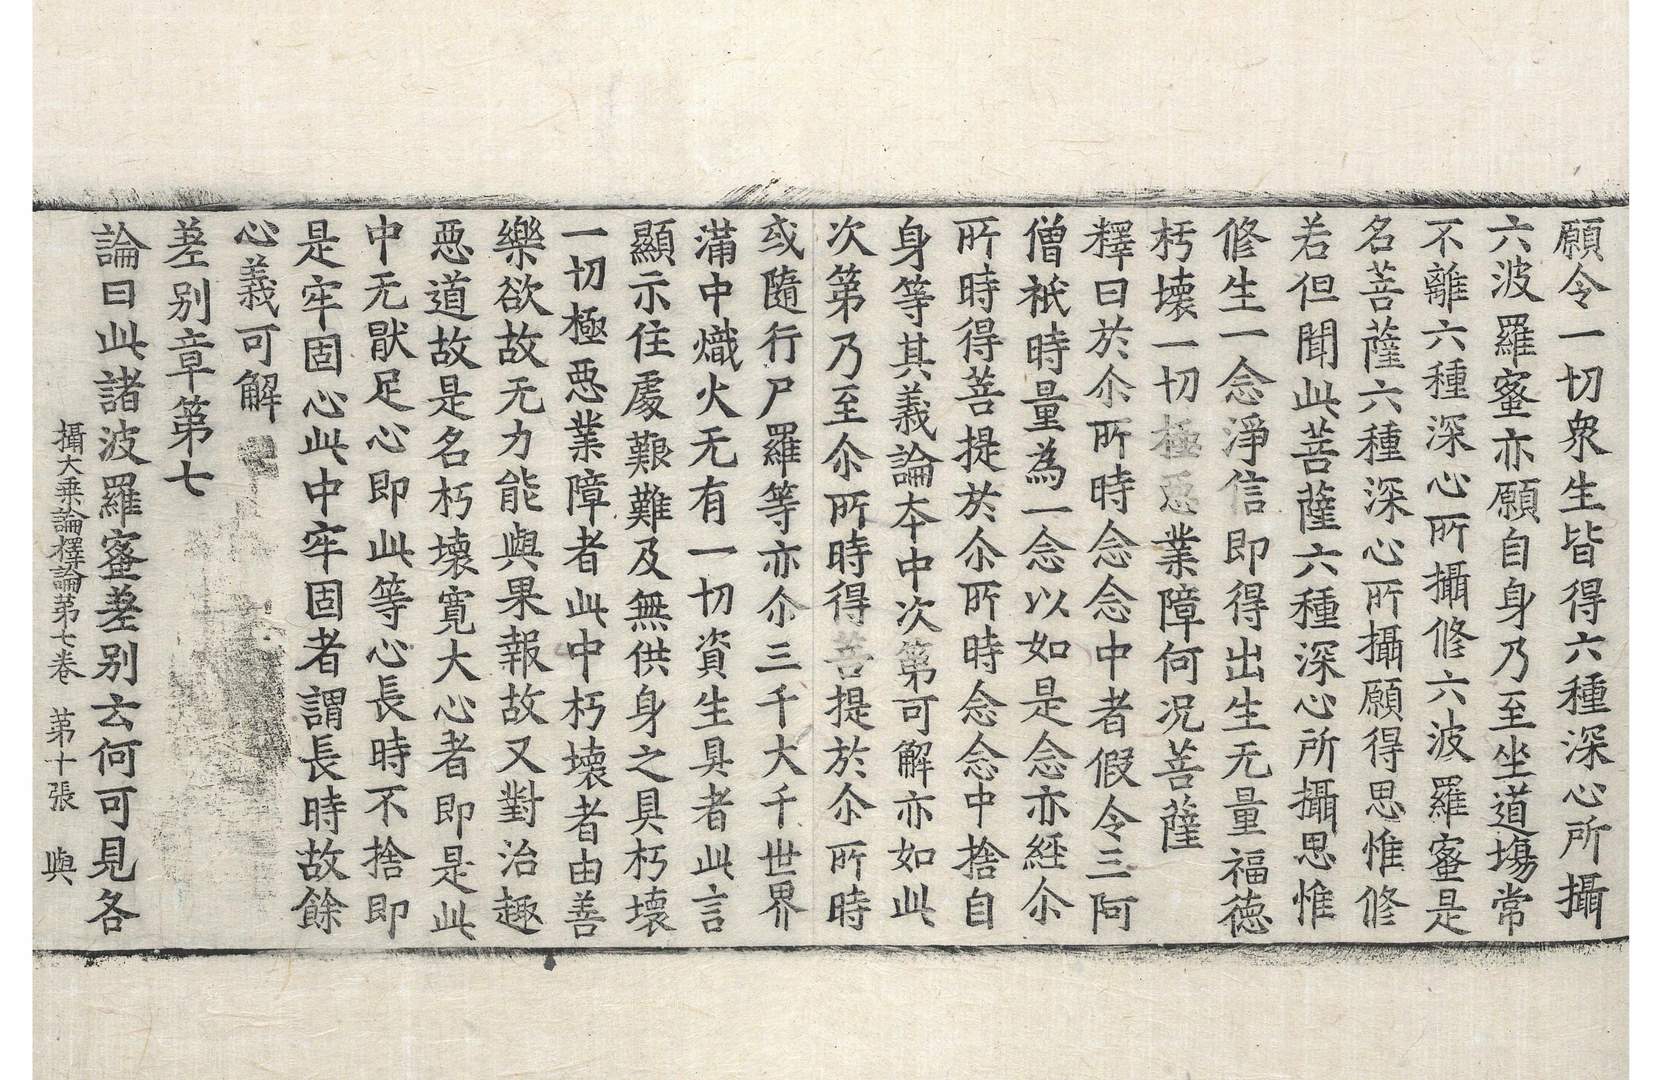 願令一切衆生皆得六種深心所攝
六波羅蜜亦願自身乃至坐道場常
不離六種深心所攝修六波羅蜜是
名菩薩六種深心所攝願得思惟修
若但聞此菩薩六種深心所攝思惟
修生一念淨信即得出生无量福德
朽壞一切極惡業障何况菩薩
釋曰於尒所時念念中者假令三阿
僧祇時量為一念以如是念亦經尒
所時得菩提於尒所時念念中捨自
身等其義論本中次第可解亦如此
次第乃至尒所時得菩提於尒所時
或隨行尸羅等亦尒三千大千世界
滿中熾火无有一切資生具者此言
顯示住處艱難及無供身之具朽壞
一切極惡業障者此中朽壞者由善
樂欲故无力能與果報故又對治趣
惡道故是名朽壞寬大心者即是此
中无猒足心即此等心長時不捨即
是牢固心此中牢固者謂長時故餘
心義可解
差别章第七
論曰此諸波羅蜜差别云何可見各
攝大乘論釋論第七卷 第十張 與